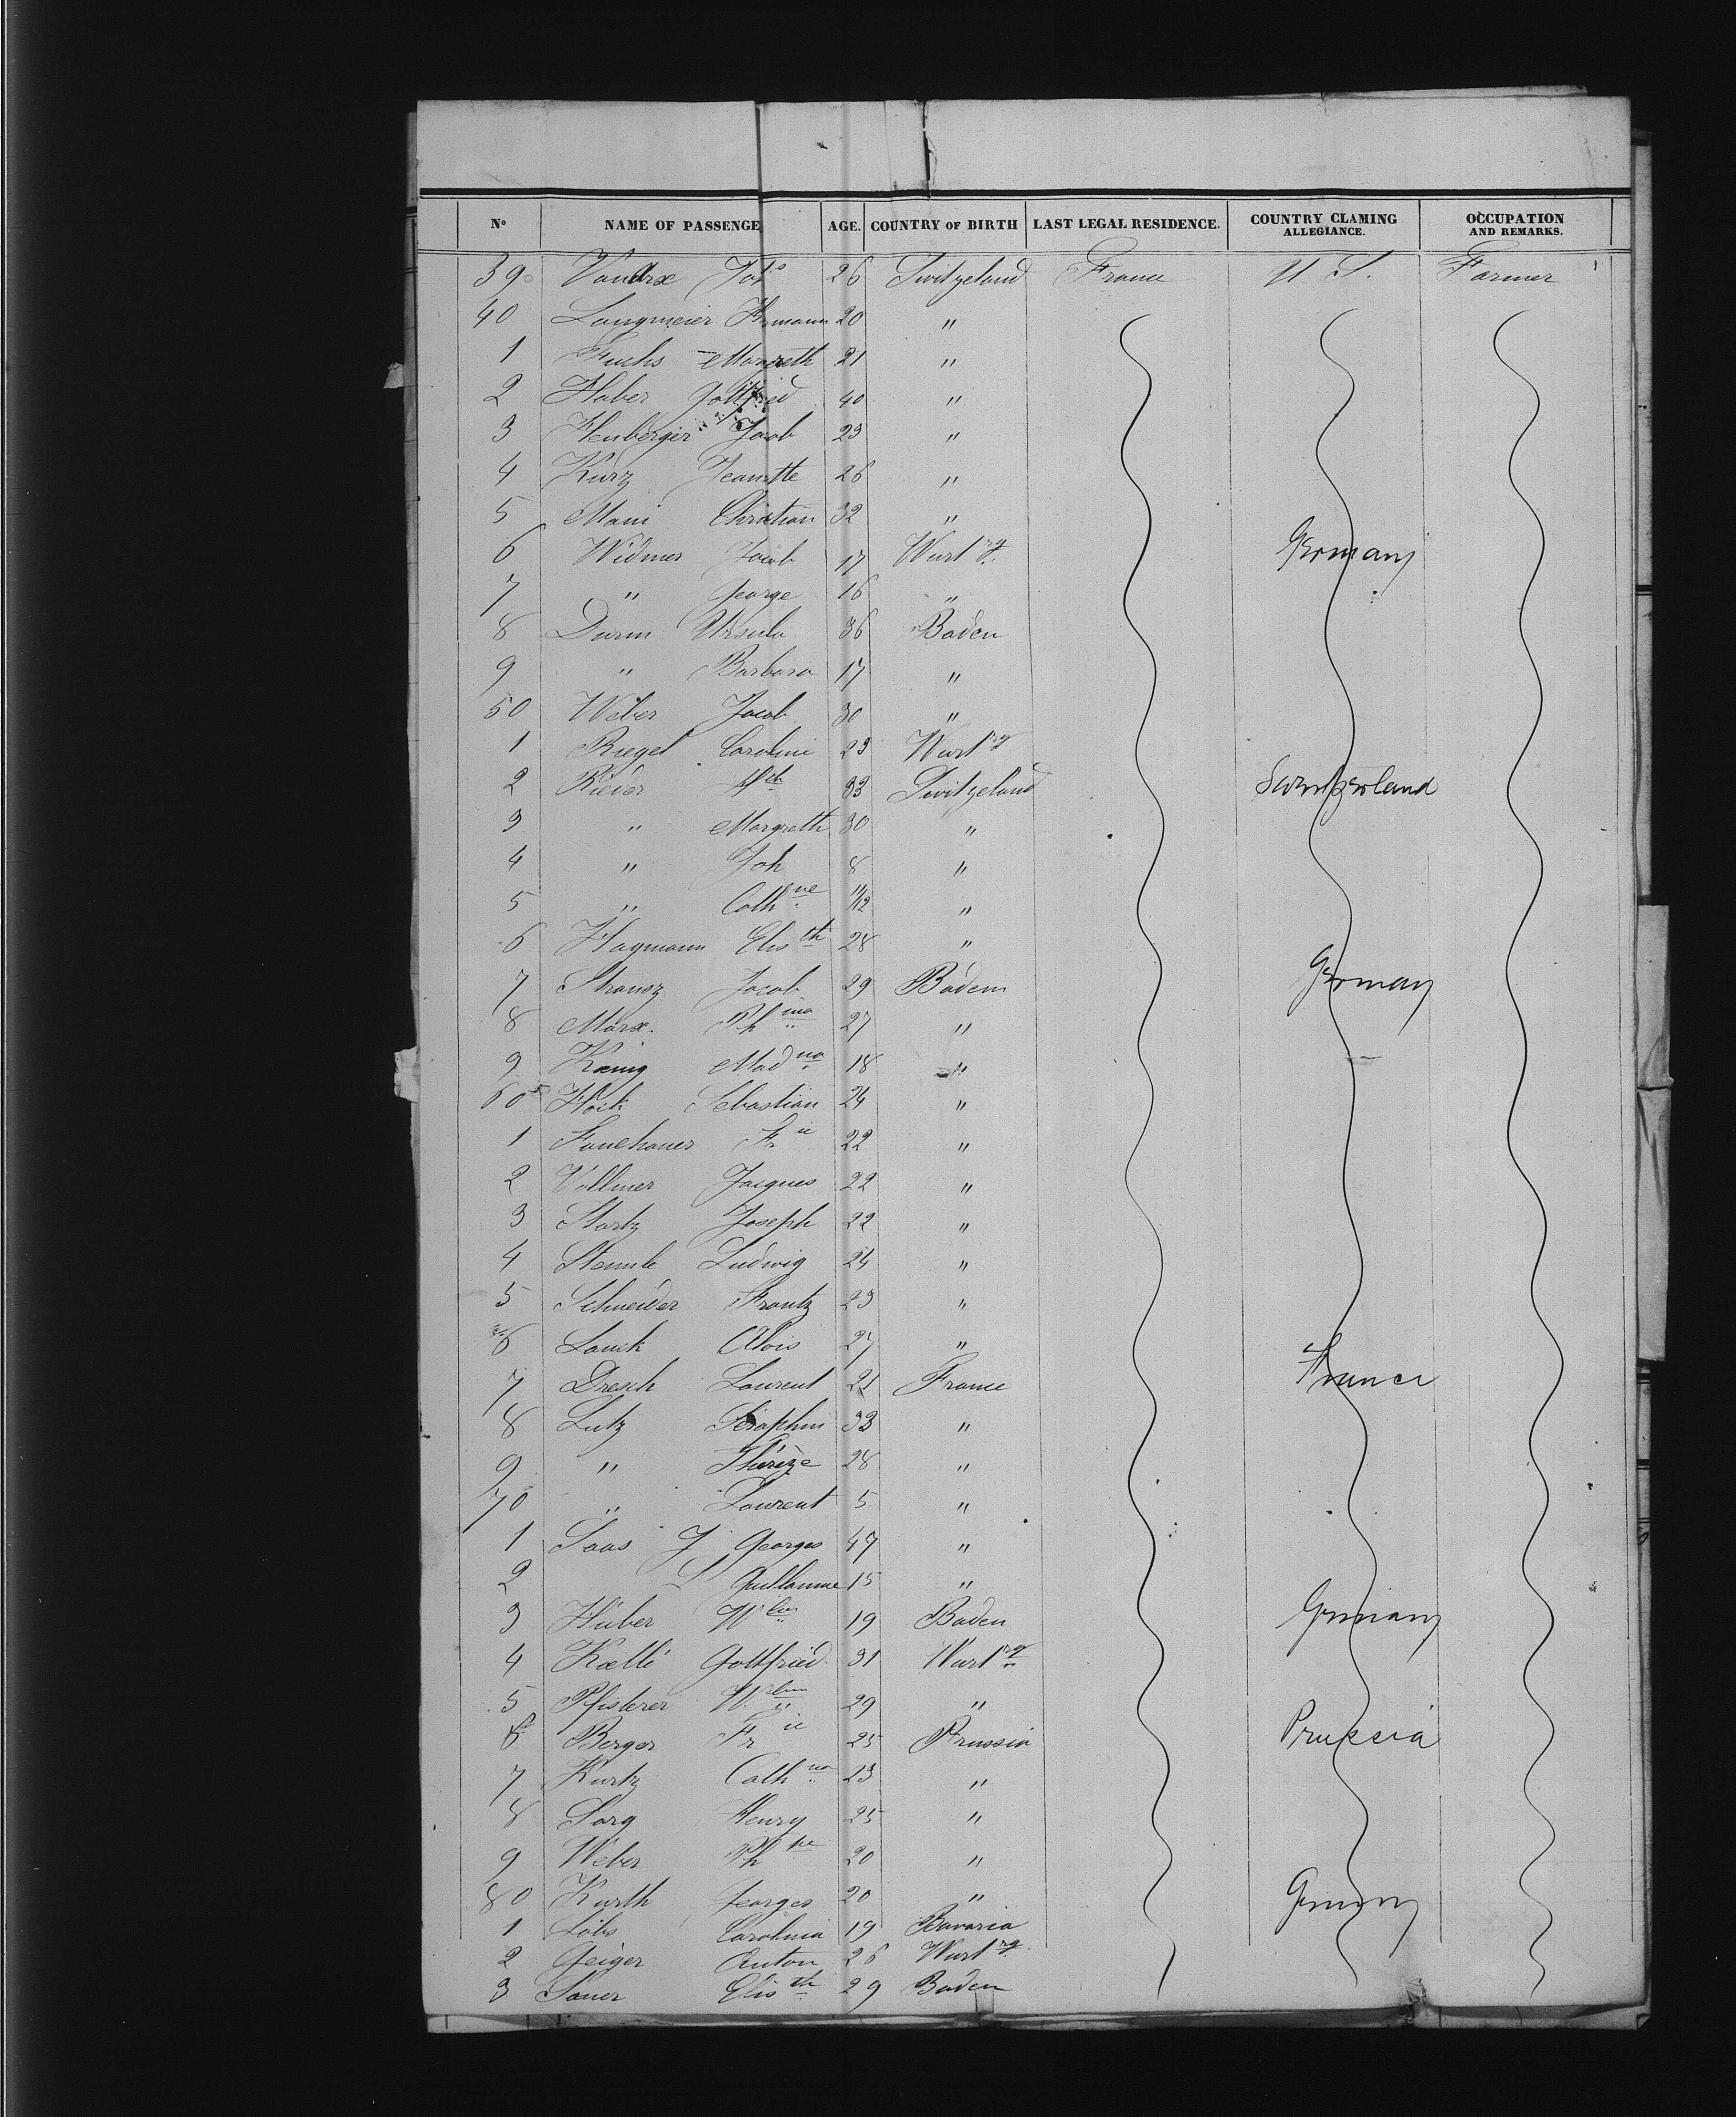 No NAME OF PASSENGE AGE. COUNTRY OF BIRTH LAST LEGAL RESIDENCE. COUNTRY CLAMING ALLEGIANCE. OCCUPATION AND REMARKS.
39 Vandrx 26 Switzeland France U S. Farmer
40 Langmeier Hermann 20 "
1 Fuchs Margreth 21 "
2 Huber Gottfried 40 "
3 Heuberger Jacob 23 "
4 Kurz Jeanette 26 "
5 Mani Christian 32 "
6 Widmer Jacob 17 Wurtrg. Germany
7 " George 16 "
8 Durm Ursula 36 Baden
9 " Barbara 17 "
50 Weber Jacob 30 "
1 Riegel Caroline 23 Wurtrg
2 Rieder Hch 33 Switzeland Switzerland
3 " Margreth 30 "
4 " Joh 8 "
5 " Cathne 11/12 "
6 Haymann Elisth 28 "
7 Strausz Jacob 29 Baden Germay
8 Marx. Phina 27 "
9 Kœnig Madna 18 "
60 Höck Sebastian 24 "
1 Fauehauer Fric 22 "
2 Vollmer Jacques 22 "
3 Startz Joseph 22 "
4 Stemmle Ludwig 24 "
5 Schneider Frantz 23 "
6 Lauck Alois 27 "
7 Dresch Laurent 21 France France
8 Lutz Séraphin 33 "
9 " Thérèze 28 "
70 " Laurent 5 "
1 Saas J Georges 47 "
2 Guillaume 15 "
3 Huber Whm 19 Baden Germany
4 Kœlle Gottfried 31 Wurtrg
5 Pfisterer Whm 29 "
6 Berger Fric 25 Prussia Prussia
7 Kurtz Cathna 23 "
8 Sarg Henry 25 "
9 Weber Phne 20 "
80 Kurth Georges 20 " Germany
1 Löbs Carolina 19 Bavaria
2 Geiger Anton 26 Wurtrg.
3 Sauer Elisth 29 Baden